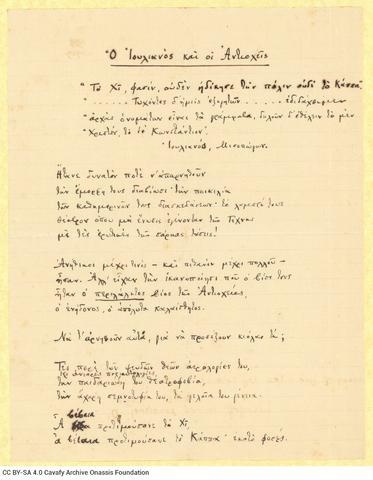 "Ο Ιουλιανός και οι Αντιοχείς
"Το Χῖ, φασίν, οὐδὲν ἠδίκησε τὴν πόλιν οὐδὲ τὸ Κάππα.
"....... Τυχόντες δ' ἡμεῖς ἐξηγητῶν ...... ἐδιδάχθημεν
"ἀρχὰς ὀνομάτων εἶναι τὰ γράμματα, δηλοῦν δ' ἐθέλειν τὸ μὲν
"Χριστόν, τὸ δὲ Κωνστάντιον".
Ιουλιανού, Μισοπώγων.
Ήτανε δυνατόν ποτέ ν' απαρνηθούν
την έμορφή τους διαβίωσι· την ποικιλία
των καθημερινών τους διασκεδάσεων· το λαμπρό τους
θέατρον όπου μια ένωσις εγένονταν της Τέχνης
με τες ερωτικές της σάρκας τάσεις!
Ανήθικοι μέχρι τινός — και πιθανόν μέχρι πολλού —
ήσαν. Αλλ' είχαν την ικανοποίησι που ο βίος τους
ήταν ο περιλάλητος βίος της Αντιοχείας,
ο ενήδονος, ο απόλυτα καλαίσθητος.
Να τ' αρνηθούν αυτά, για να προσέξουν κιόλας τι;
Τες περί των ψευδών θεών αερολογίες του,
τες ανιαρές περιαυτολογίες·
την παιδαριώδη του θεατροφοβία,
την άχαρη σεμνοτυφία του, τα γελοία του γένεια.
βέβαια
Α προτιμούσανε το Χι,
α βέβαια προτιμούσανε το Κάππα· εκατό φορές.
CC BY-SA 4.0 Cavafy Archive Onassis Foundation